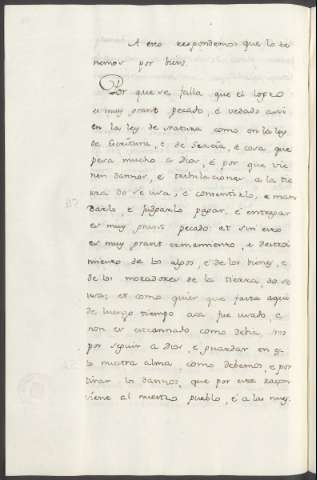 A esto respondemos que lo te-
nemos por bien.
Por que se falla que el logro
es muy grant pecado, è vedado asi
en la ley de natura como en la ley
de Escritura, e de Gracia, è cosa que
pesa mucho a Dios, è por que vie-
nen dannos, e tribulaciones a la tie-
rra do se usa, è consentirlo, e man-
darlo, e judgarlo pagar, è entregar
es muy grant pecado: et sin esto
es muy grant ermamiento, e destroi-
miento de los algos, e de los bienes, e
de los moradores de la tierra, do se
usa; et como quier que fasta aqui
de luengo tiempo aca fue usado, e
non es escarmentado como debia: nos
por seguir a Dios, e guardar en e-
lo nuestra alma, como debemos e por
tirar los dannos, que por esta razon
viene al nuestro pueblo, è a las nues-